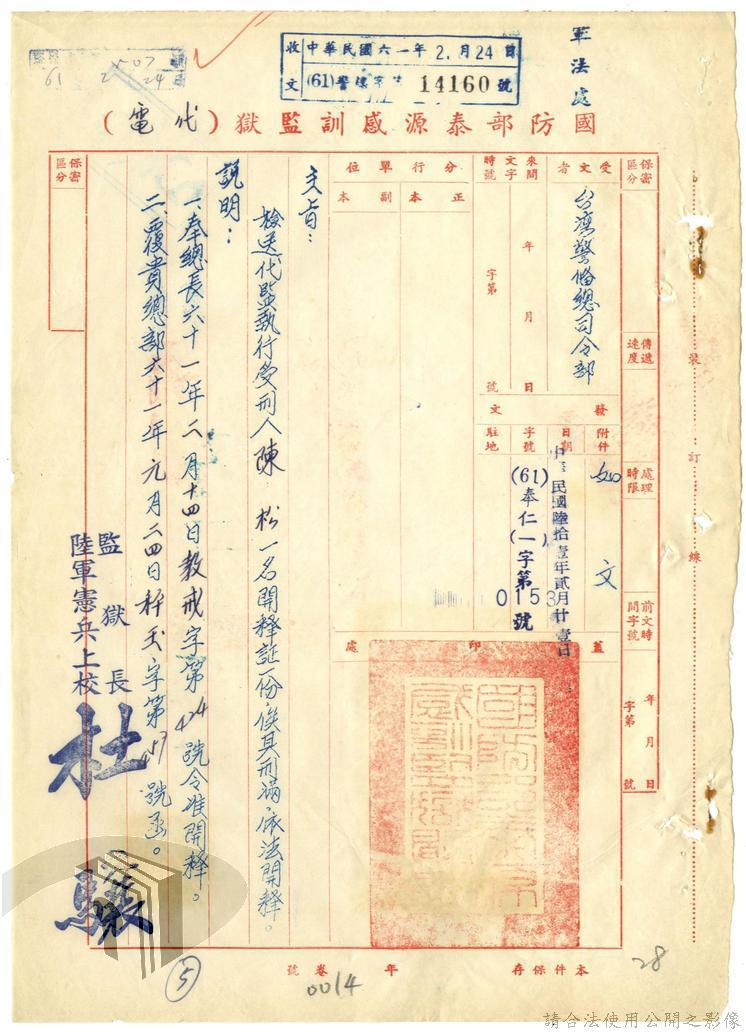 軍法處
收文 中華民國六一年2.月24日
(61)警 字 14160號
國防部泰源感訓監獄(代電)
保密區分
傳遞速度
處理時限
前文時間字號
年 月 日
字第 號
受文者
台灣警備總司令部
來文時間字號
年 月 日
字第 號
分行單位
正本
副本
發文
附件
如文
日期
中華民國陸拾壹年貳月廿壹日
字號
(61)奉仁(一)字第0153號
駐地
蓋印處
主旨:
檢送代監執行受刑人陳 松一名開釋証一份,俟其刑滿依法開釋。
說明:
一、奉總長六十一年二月十四日教戒字第424號令准開釋。
二、覆貴總部六十一年元月二四日秤玉字第 號函。
監獄長
陸軍憲兵上校 杜
保密區分
裝 訂 線
本件保存 年 卷 號
0014
5
28
請合法使用公開之影像